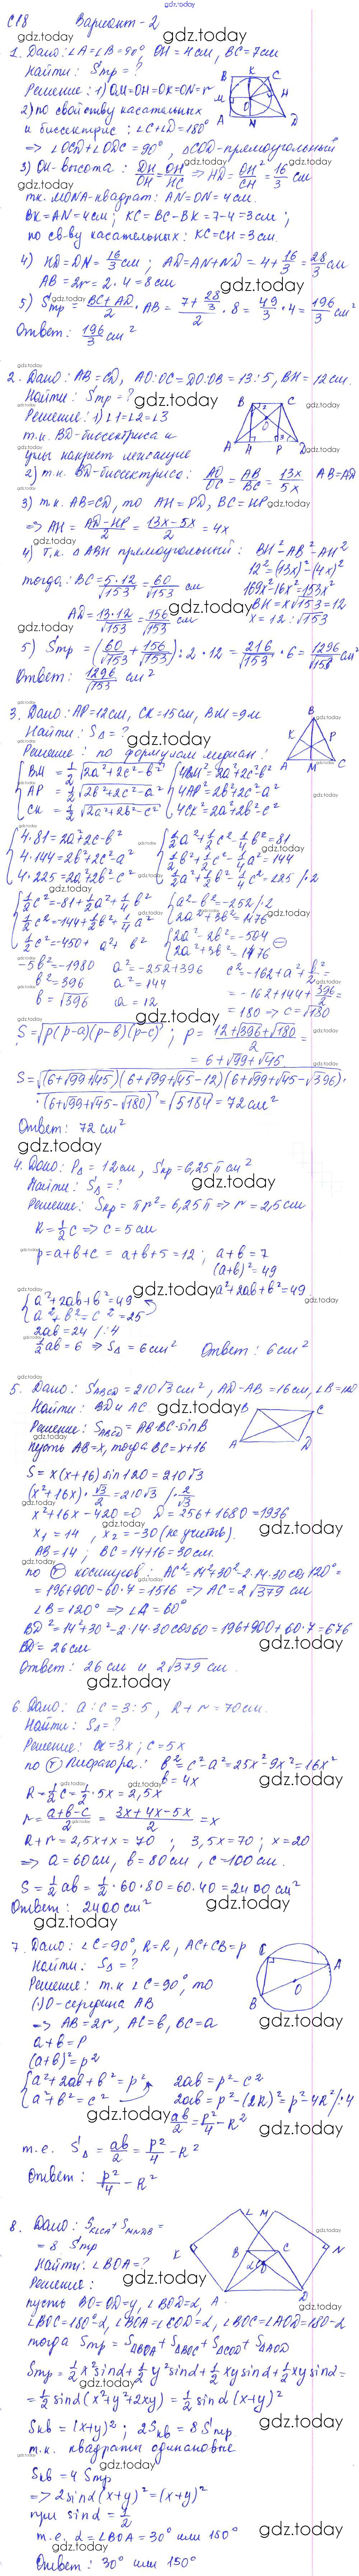 gdz.today
С18 Вариант-2
1. Дано: ∠A=∠B=90°, OH=4см, BC=7см
Найти: Sтр=?
Решение: 1) OM=OH=OK=ON=r
2) по свойству касательных
и биссектрис: ∠C+∠D=180°
⇒ ∠OCD+∠ODC=90°, △COD-прямоугольный
3) OH-высота: DH/OH=OH/HC ⇒ HD=OH²/CH=16/3 см
т.к. MONA-квадрат: AN=ON=4см.
BK=AN=4см; KC=BC-BK=7-4=3см;
по св-ву касательных: KC=CH=3см.
4) HD=DN=16/3 см; AD=AN+ND=4+16/3=28/3 см
AB=2r=2·4=8см
5) Sтр=(BC+AD)/2·AB=(7+28/3)/2·8=49/3·4=196/3 см²
Ответ: 196/3 см²
2. Дано: AB=CD, AO:OC=DO:OB=13:5, BH=12см.
Найти: Sтр=?
Решение: 1) ∠1=∠2=∠3
т.к. BD-биссектриса и
углы накрест лежащие
2) т.к. BD-биссектриса: AO/OC=AB/BC=13x/5x AB=AD
3) т.к. AB=CD, то AH=PD, BC=HP
⇒ AH=(AD-HP)/2=(13x-5x)/2=4x
4) т.к. △ABH прямоугольный: BH²=AB²-AH²
12²=(13x)²-(4x)²
169x²-16x²=153x²
BH=x√153=12
x=12:√153
тогда: BC=5·12/√153=60/√153 см
AD=13·12/√153=156/√153 см
5) Sтр=(60/√153+156/√153):2·12=216/√153·6=1296/√153 см²
Ответ: 1296/√153 см²
3. Дано: AP=12см, CK=15см, BM=9м
Найти: S△=?
Решение: по формулам медиан:
BM=1/2√(2a²+2c²-b²) 4BM²=2a²+2c²-b²
AP=1/2√(2b²+2c²-a²) 4AP²=2b²+2c²-a²
CK=1/2√(2a²+2b²-c²) 4CK²=2a²+2b²-c²
4·81=2a²+2c²-b² 1/2a²+1/2c²-1/4b²=81
4·144=2b²+2c²-a² 1/2b²+1/2c²-1/4a²=144
4·225=2a²+2b²-c² 1/2a²+1/2b²-1/4c²=225 /·2
-5b²=-1980 a²=-252+396
b²=396 a²=144
b=√396 a=12
=180 ⇒ c=√180
S=√(p(p-a)(p-b)(p-c)); p=(12+√396+√180)/2=
=6+√99+√45
S=√((6+√99+√45)(6+√99+√45-12)(6+√99+√45-√396)·
·(6+√99+√45-√180))=√5184=72см²
Ответ: 72см²
4. Дано: P△=12см, Sкр=6,25π см²
Найти: S△=?
Решение: Sкр=πr²=6,25π ⇒ r=2,5см
R=1/2c ⇒ c=5см
p=a+b+c=a+b+5=12; a+b=7
(a+b)²=49
a²+2ab+b²=49
a²+2ab+b²=49
a²+b²=c²=25
2ab=24 /:4
1/2ab=6 ⇒ S△=6см² Ответ: 6см²
5. Дано: SABCD=210√3см², AD-AB=16см, ∠B=120
Найти: BD и AC.
Решение: SABCD=AB·BC·sinB
пусть AB=x, тогда BC=x+16
S=x(x+16)sin120=210√3
(x²+16x)·√3/2=210√3 /·2/√3
x²+16x-420=0 D=256+1680=1936
x₁=14, x₂=-30 (не учитыв).
AB=14; BC=14+16=30см.
по Т косинусов: AC²=14²+30²-2·14·30cos120°=
=196+900-60·7=1516 ⇒ AC=2√379 см
∠B=120° ⇒ ∠A=60°
BD²=14²+30²-2·14·30cos60=196+900+60·7=676
BD=26см
Ответ: 26см и 2√379 см.
6. Дано: a:c=3:5, R+r=70см.
Найти: S△=?
Решение: a=3x; c=5x
по Т Пифагора: b²=c²-a²=25x²-9x²=16x²
b=4x
R=1/2c=1/2·5x=2,5x
r=(a+b-c)/2=(3x+4x-5x)/2=x
R+r=2,5x+x=70; 3,5x=70; x=20
⇒ a=60см, b=80см, c=100см.
S=1/2ab=1/2·60·80=60·40=2400см²
Ответ: 2400см²
7. Дано: ∠C=90°, R=R, AC+CB=p
Найти: S△=?
Решение: т.к ∠C=90°, то
(·)O-середина AB
⇒ AB=2r, AC=b, BC=a
a+b=p
(a+b)²=p²
a²+2ab+b²=p² 2ab=p²-c²
a²+b²=c² 2ab=p²-(2R)²=p²-4R² /:4
ab/2=p²/4-R²
т.е. S△=ab/2=p²/4-R²
Ответ: p²/4-R²
8. Дано: SKLCA+SMNDB=
=8 Sтр
Найти: ∠BOA=?
Решение:
пусть BO=OD=y, ∠BOD=α,
∠BOC=180°-α, ∠BOA=∠COD=α, ∠BOC=∠AOD=180-α
тогда Sтр=S△BOA+S△BOC+S△COD+S△AOD
Sтр=1/2x²sinα+1/2y²sinα+1/2xysinα+1/2xysinα=
=1/2sinα(x²+y²+2xy)=1/2sinα(x+y)²
Sкв=(x+y)²; 2Sкв=8Sтр
т.к. квадраты одинаковые
Sкв=4Sтр
⇒ 2sinα(x+y)²=(x+y)²
при sinα=1/2
т.е. α=∠BOA=30° или 150°
Ответ: 30° или 150°